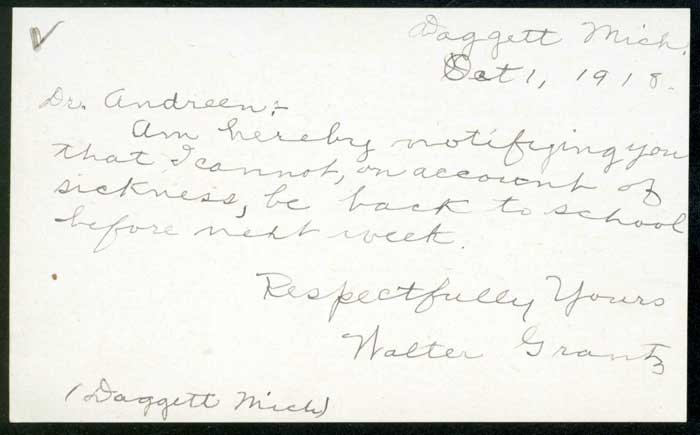 Daggett Mich.
Oct 1, 1918.
Dr. Andreen:-
Am hereby notifying you
that I cannot, on account of
sickness, be back to school
before next week.
Respectfully Yours
Walter Grantz
(Daggett Mich)